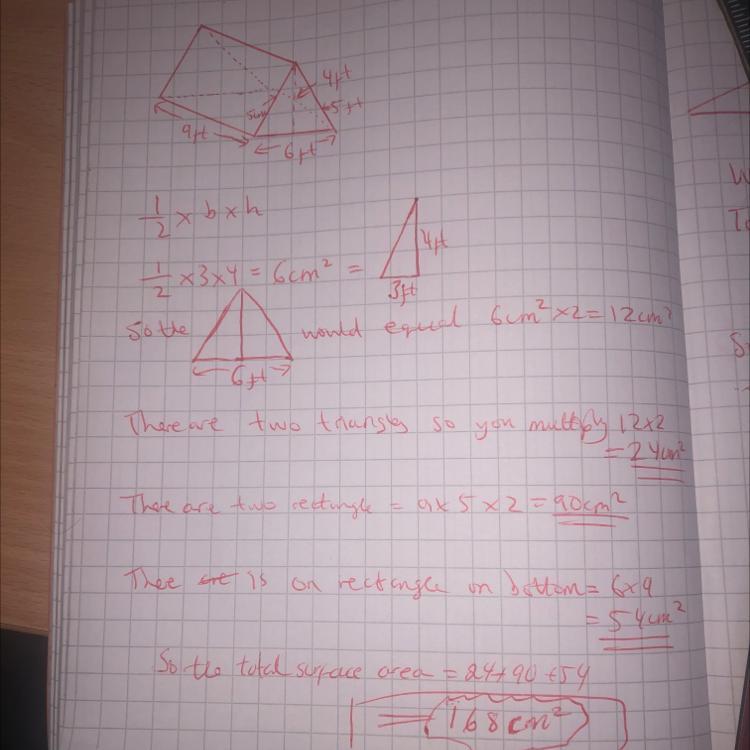 4ft
5cm
5ft
9ft
6ft
1/2 × b × h
1/2 × 3 × 4 = 6cm² =
4ft
3ft
So the would equal 6cm² × 2 = 12cm²
6ft
There are two triangles so you multiply 12×2
= 24cm²
There are two rectangle = 9 × 5 × 2 = 90cm²
There are is on rectangle on bottom = 6×9
= 54cm²
So the total surface area = 24+90+54
= 168cm²